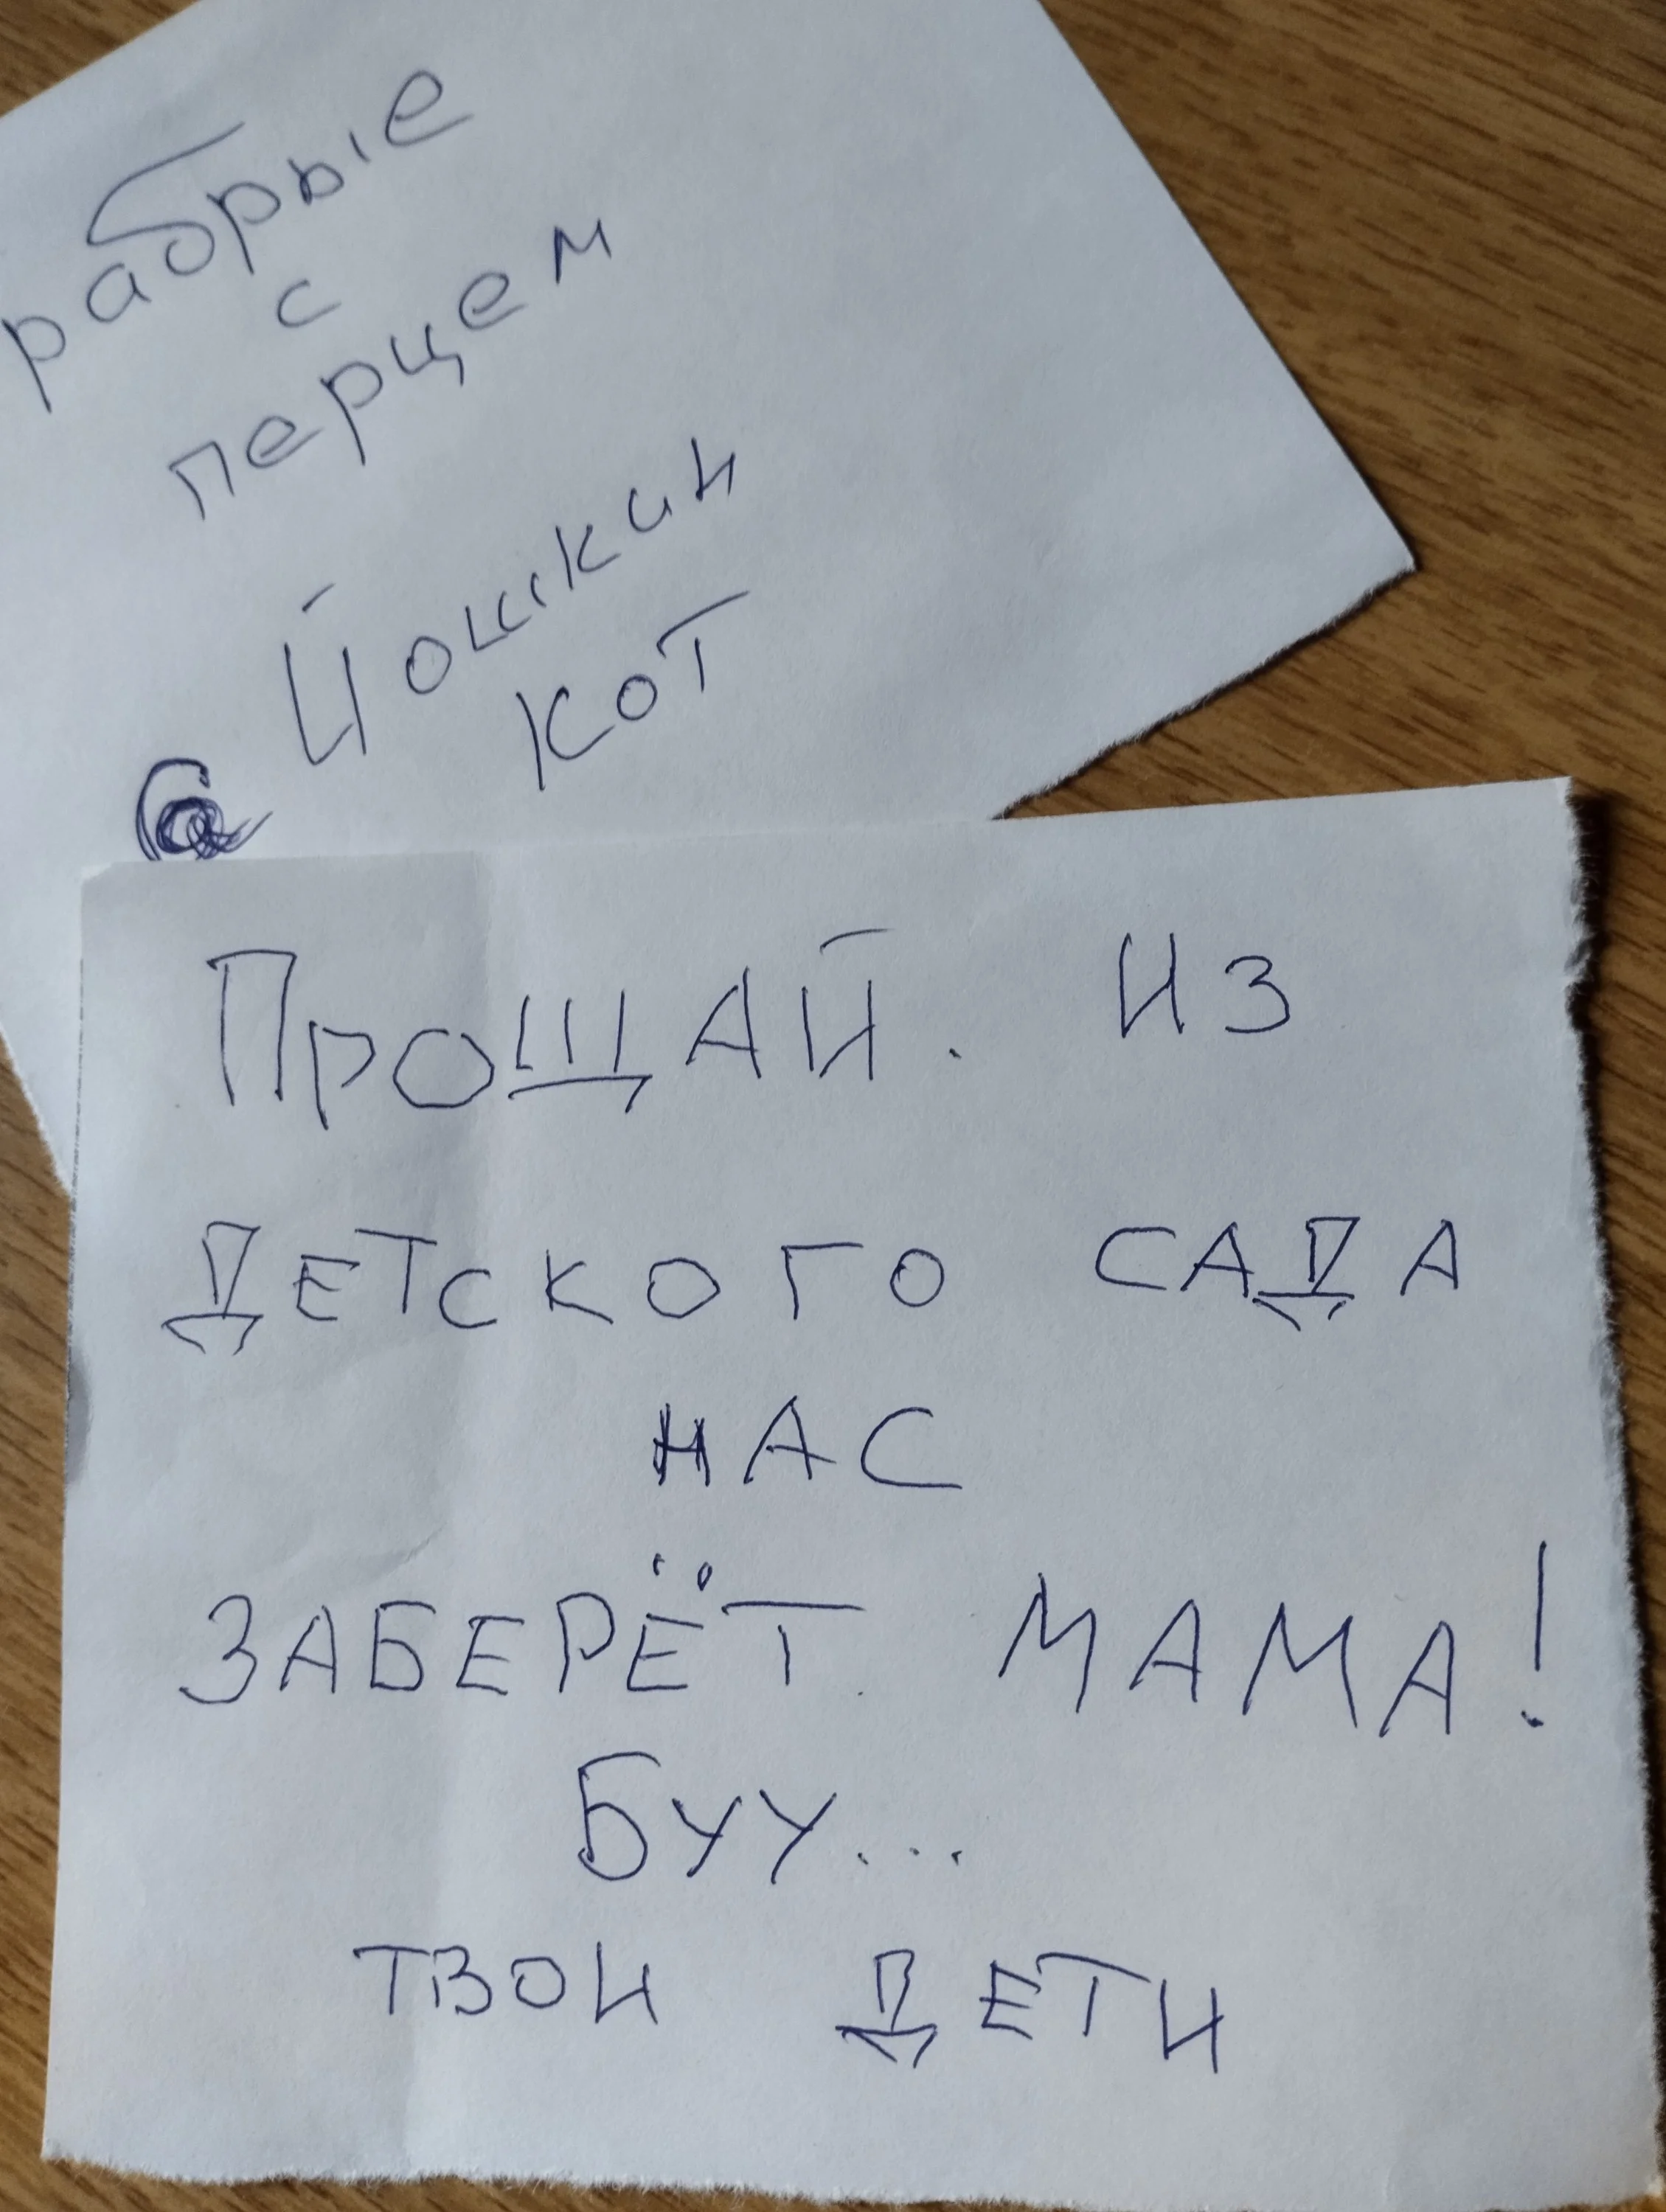 рабрые
с
перцем
Йошкин
кот
Прощай. Из
детского сада
нас
заберёт мама!
Буу...
твои дети